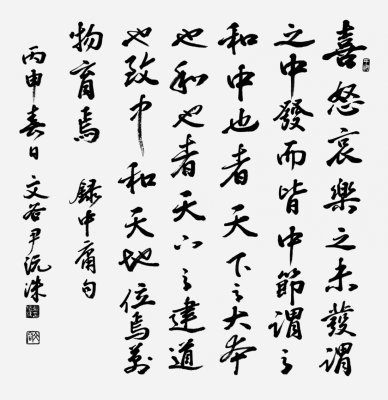 喜怒哀樂之未發謂
之中發而皆中節謂之
和中也者天下之大本
也和也者天下之達道
也致中和天地位焉萬
物育焉 録中庸句
丙申春日 文谷尹沅洙